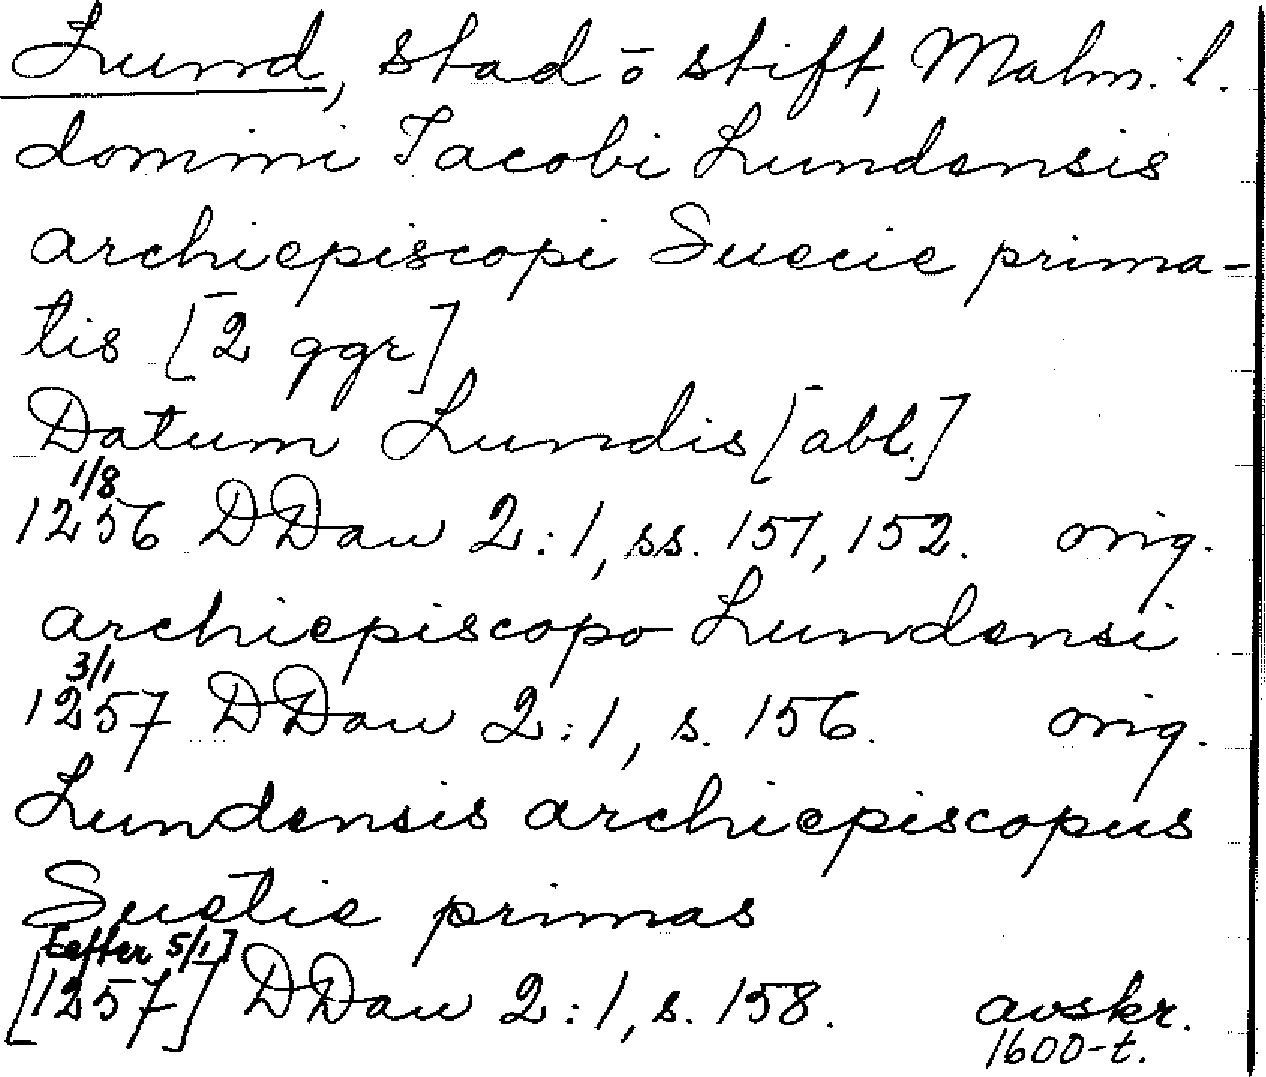 Lund, stad o stift, Malm. l.
domini Jacobi Lundensis
archiepiscopi Suecie prima-
tis [2 ggr]
Datum Lundis [abl.]
1/8
1256 DDan 2:1, ss. 151, 152. orig.
archiepiscopo Lundensi
3/1
1257 DDan 2:1, s. 156. orig.
Lundensis archiepiscopus
Suetie primas
[efter 5/1]
[1257] DDan 2:1, s. 158. avskr.
1600-t.